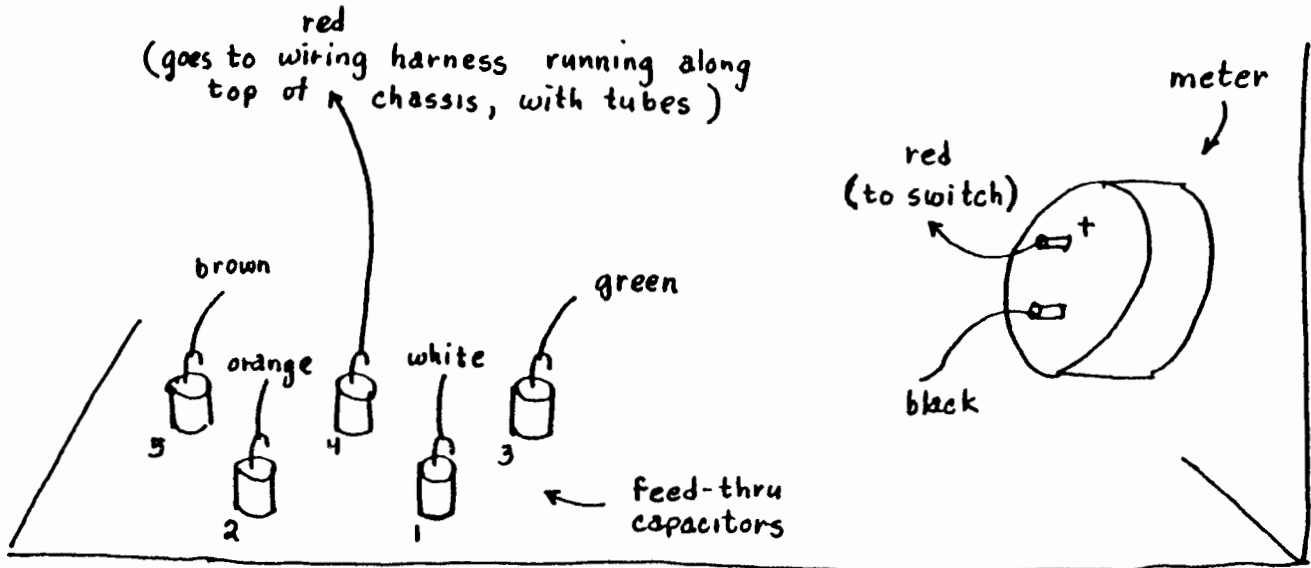 red
(goes to wiring harness running along
top of chassis, with tubes)
meter
red
(to switch)
+
brown
green
orange
white
black
5
4
3
2
1
feed-thru
capacitors